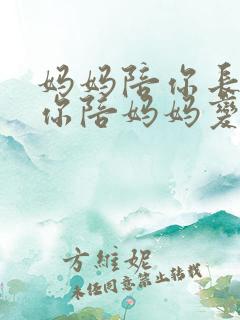 妈妈陪你长
你陪妈妈变
方维妮
未经同意禁止转载